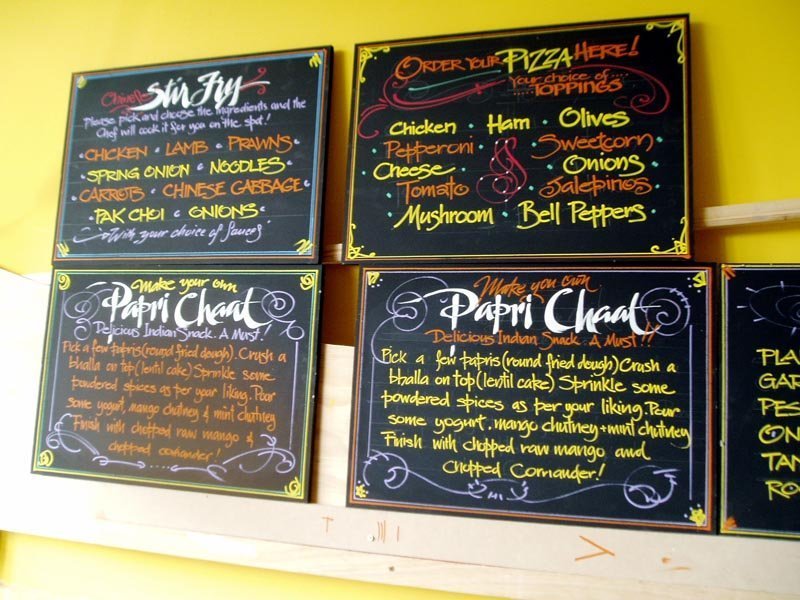 Chinese Stir Fry
Please pick and choose the ingredients and the
Chef will cook it for you on the spot!
• CHICKEN • LAMB • PRAWNS •
• SPRING ONION • NOODLES •
• CARROTS • CHINESE CABBAGE •
• PAK CHOI • ONIONS •
With your choice of Sauces
ORDER YOUR PIZZA HERE!
Your choice of
TOPPINGS
Chicken Ham Olives
Pepperoni Sweetcorn
Cheese Onions
Tomato Jalepinos
Mushroom Bell Peppers
Make your own
Papri Chaat
Delicious Indian Snack. A Must!
Pick a few papris (round fried dough). Crush a
bhalla on top (lentil cake) Sprinkle some
powdered spices as per your liking. Pour
some yogurt, mango chutney & mint chutney
Finish with chopped raw mango &
chopped coriander!
Make you own
Papri Chaat
Delicious Indian Snack. A Must!!
Pick a few papris (round fried dough) Crush a
bhalla on top (lentil cake) Sprinkle some
powdered spices as per your liking. Pour
some yogurt, mango chutney + mint chutney
Finish with chopped raw mango and
Chopped Coriander!
PLA
GAR
PES
ON
TAN
RO